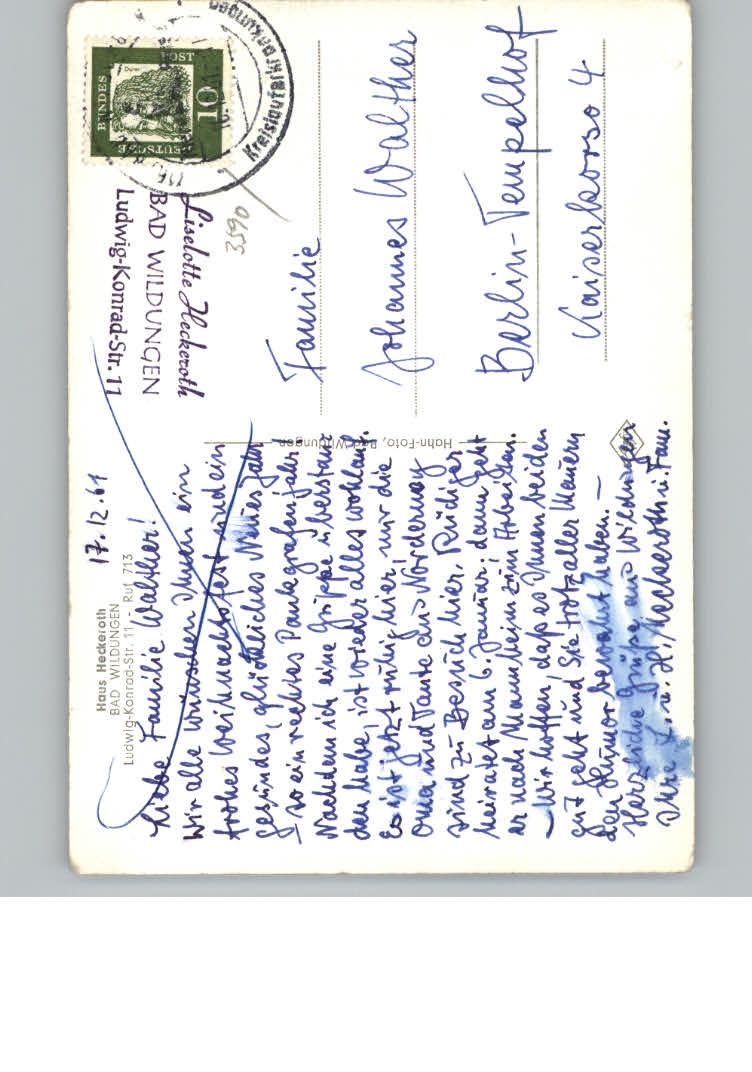 Haus Heckeroth
BAD WILDUNGEN
Ludwig-Konrad-Str. 11 - Ruf 713
17.12.61
Liebe Familie Walther!
Wir alle wünschen Ihnen ein
frohes Weihnachtsfest und ein
gesundes, glückliches Neues Jahr
– so ein rechtes Paukegrafenjahr!
Nachdem ich eine Grippe überstan-
den habe, ist wieder alles wohlauf.
Es ist jetzt ruhig hier, nur die
Oma und Tante aus Norderney
sind zu Besuch hier. Rüdiger
heiratet am 6. Januar, dann geht
er nach Mannheim zum Arbeiten.
– Wir hoffen, daß es Ihnen beiden
gut geht und Sie trotz aller Mauern
den Humor bewahrt haben. –
Herzliche Grüße aus Wildungen
Ihre L. u. H. Heckeroth u. Fam.
Hahn-Foto, Bad Wildungen
Liselotte Heckeroth
BAD WILDUNGEN
Ludwig-Konrad-Str. 11
3590
DEUTSCHE
BUNDES
POST
10
Dürer
Kreislauferkrankungen
Familie
Johannes Walther
Berlin-Tempelhof
Kaiserkorso 4